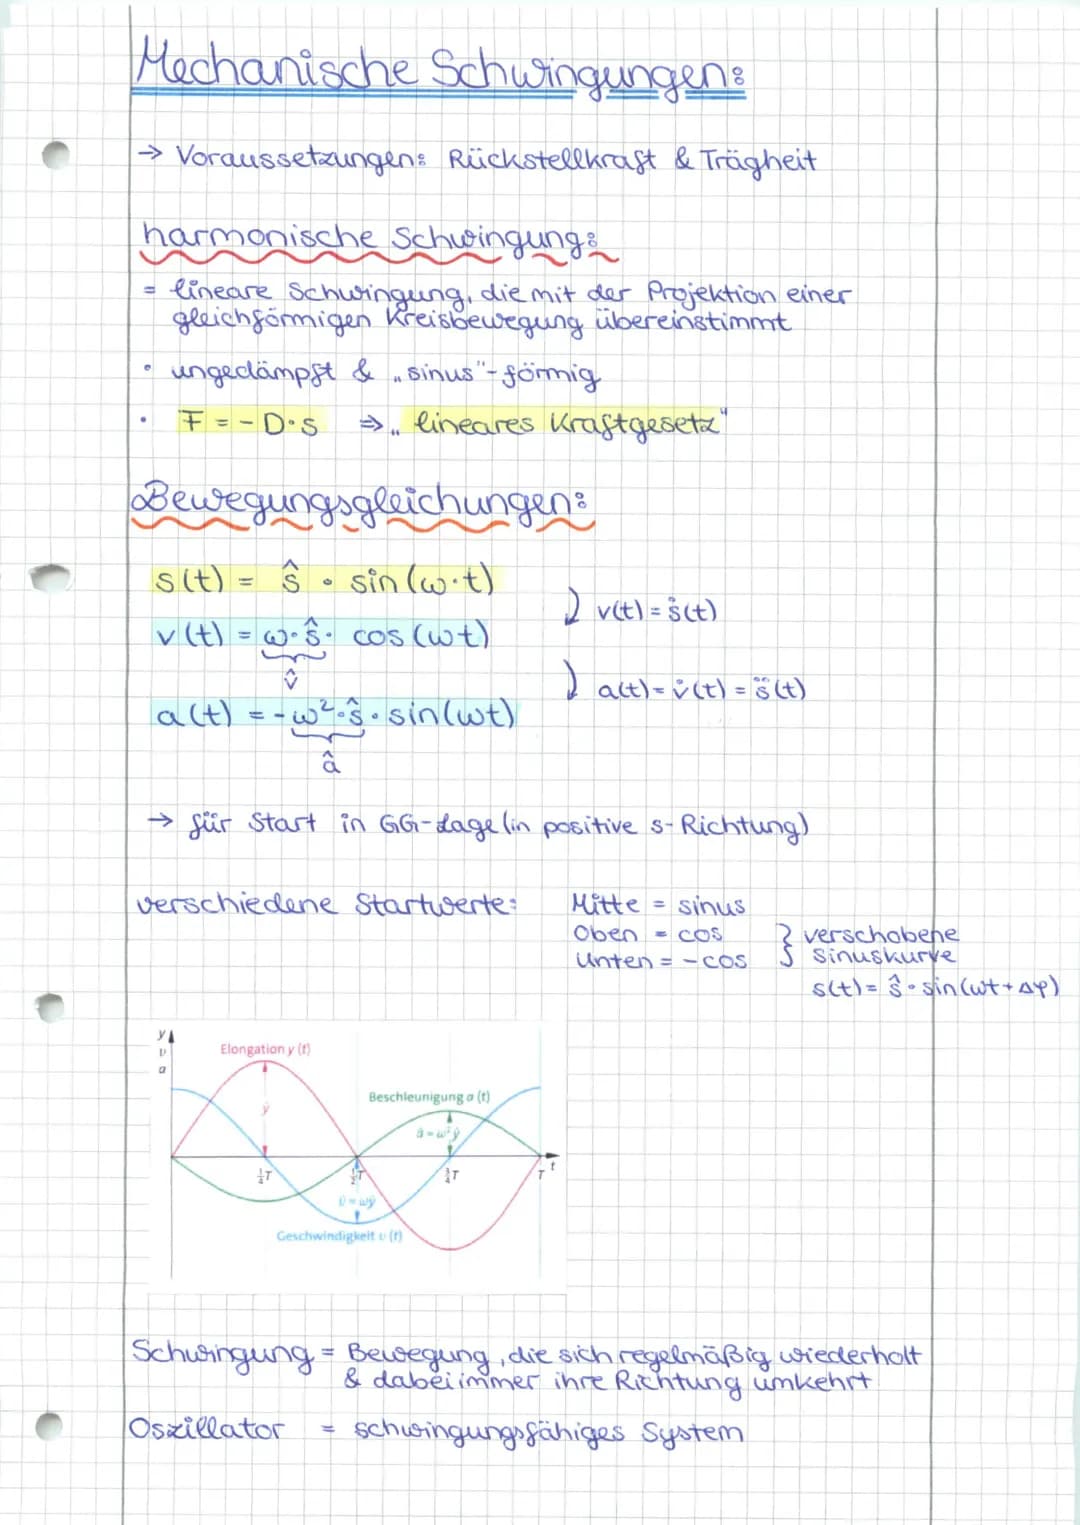 Mechanische Schwingungen:
→ Voraussetzungen: Rückstellkraft & Trägheit
harmonische Schwingung:
= lineare Schwingung, die mit der Projektion einer
gleichförmigen Kreisbewegung übereinstimmt
• ungedämpft & „sinus"-förmig
• F = - D·s ⇒ „lineares Kraftgesetz"
Bewegungsgleichungen:
s(t) = ŝ · sin(ω·t)
v(t) = ṡ(t)
v(t) = ω·ŝ· cos(ωt)
v̂
a(t) = v̇(t) = s̈(t)
a(t) = -ω²·ŝ·sin(ωt)
â
→ für Start in GG-Lage (in positive s-Richtung)
verschiedene Startwerte: Mitte = sinus
Oben = cos } verschobene
Unten = -cos sinuskurve
s(t) = ŝ·sin(ωt+Δφ)
y
υ
a
Elongation y (t)
Beschleunigung a (t)
ŷ
â = ω²ŷ
¼T ½T ¾T T t
υ̂ = ωŷ
Geschwindigkeit υ (t)
Schwingung = Bewegung, die sich regelmäßig wiederholt
& dabei immer ihre Richtung umkehrt
Oszillator = schwingungsfähiges System